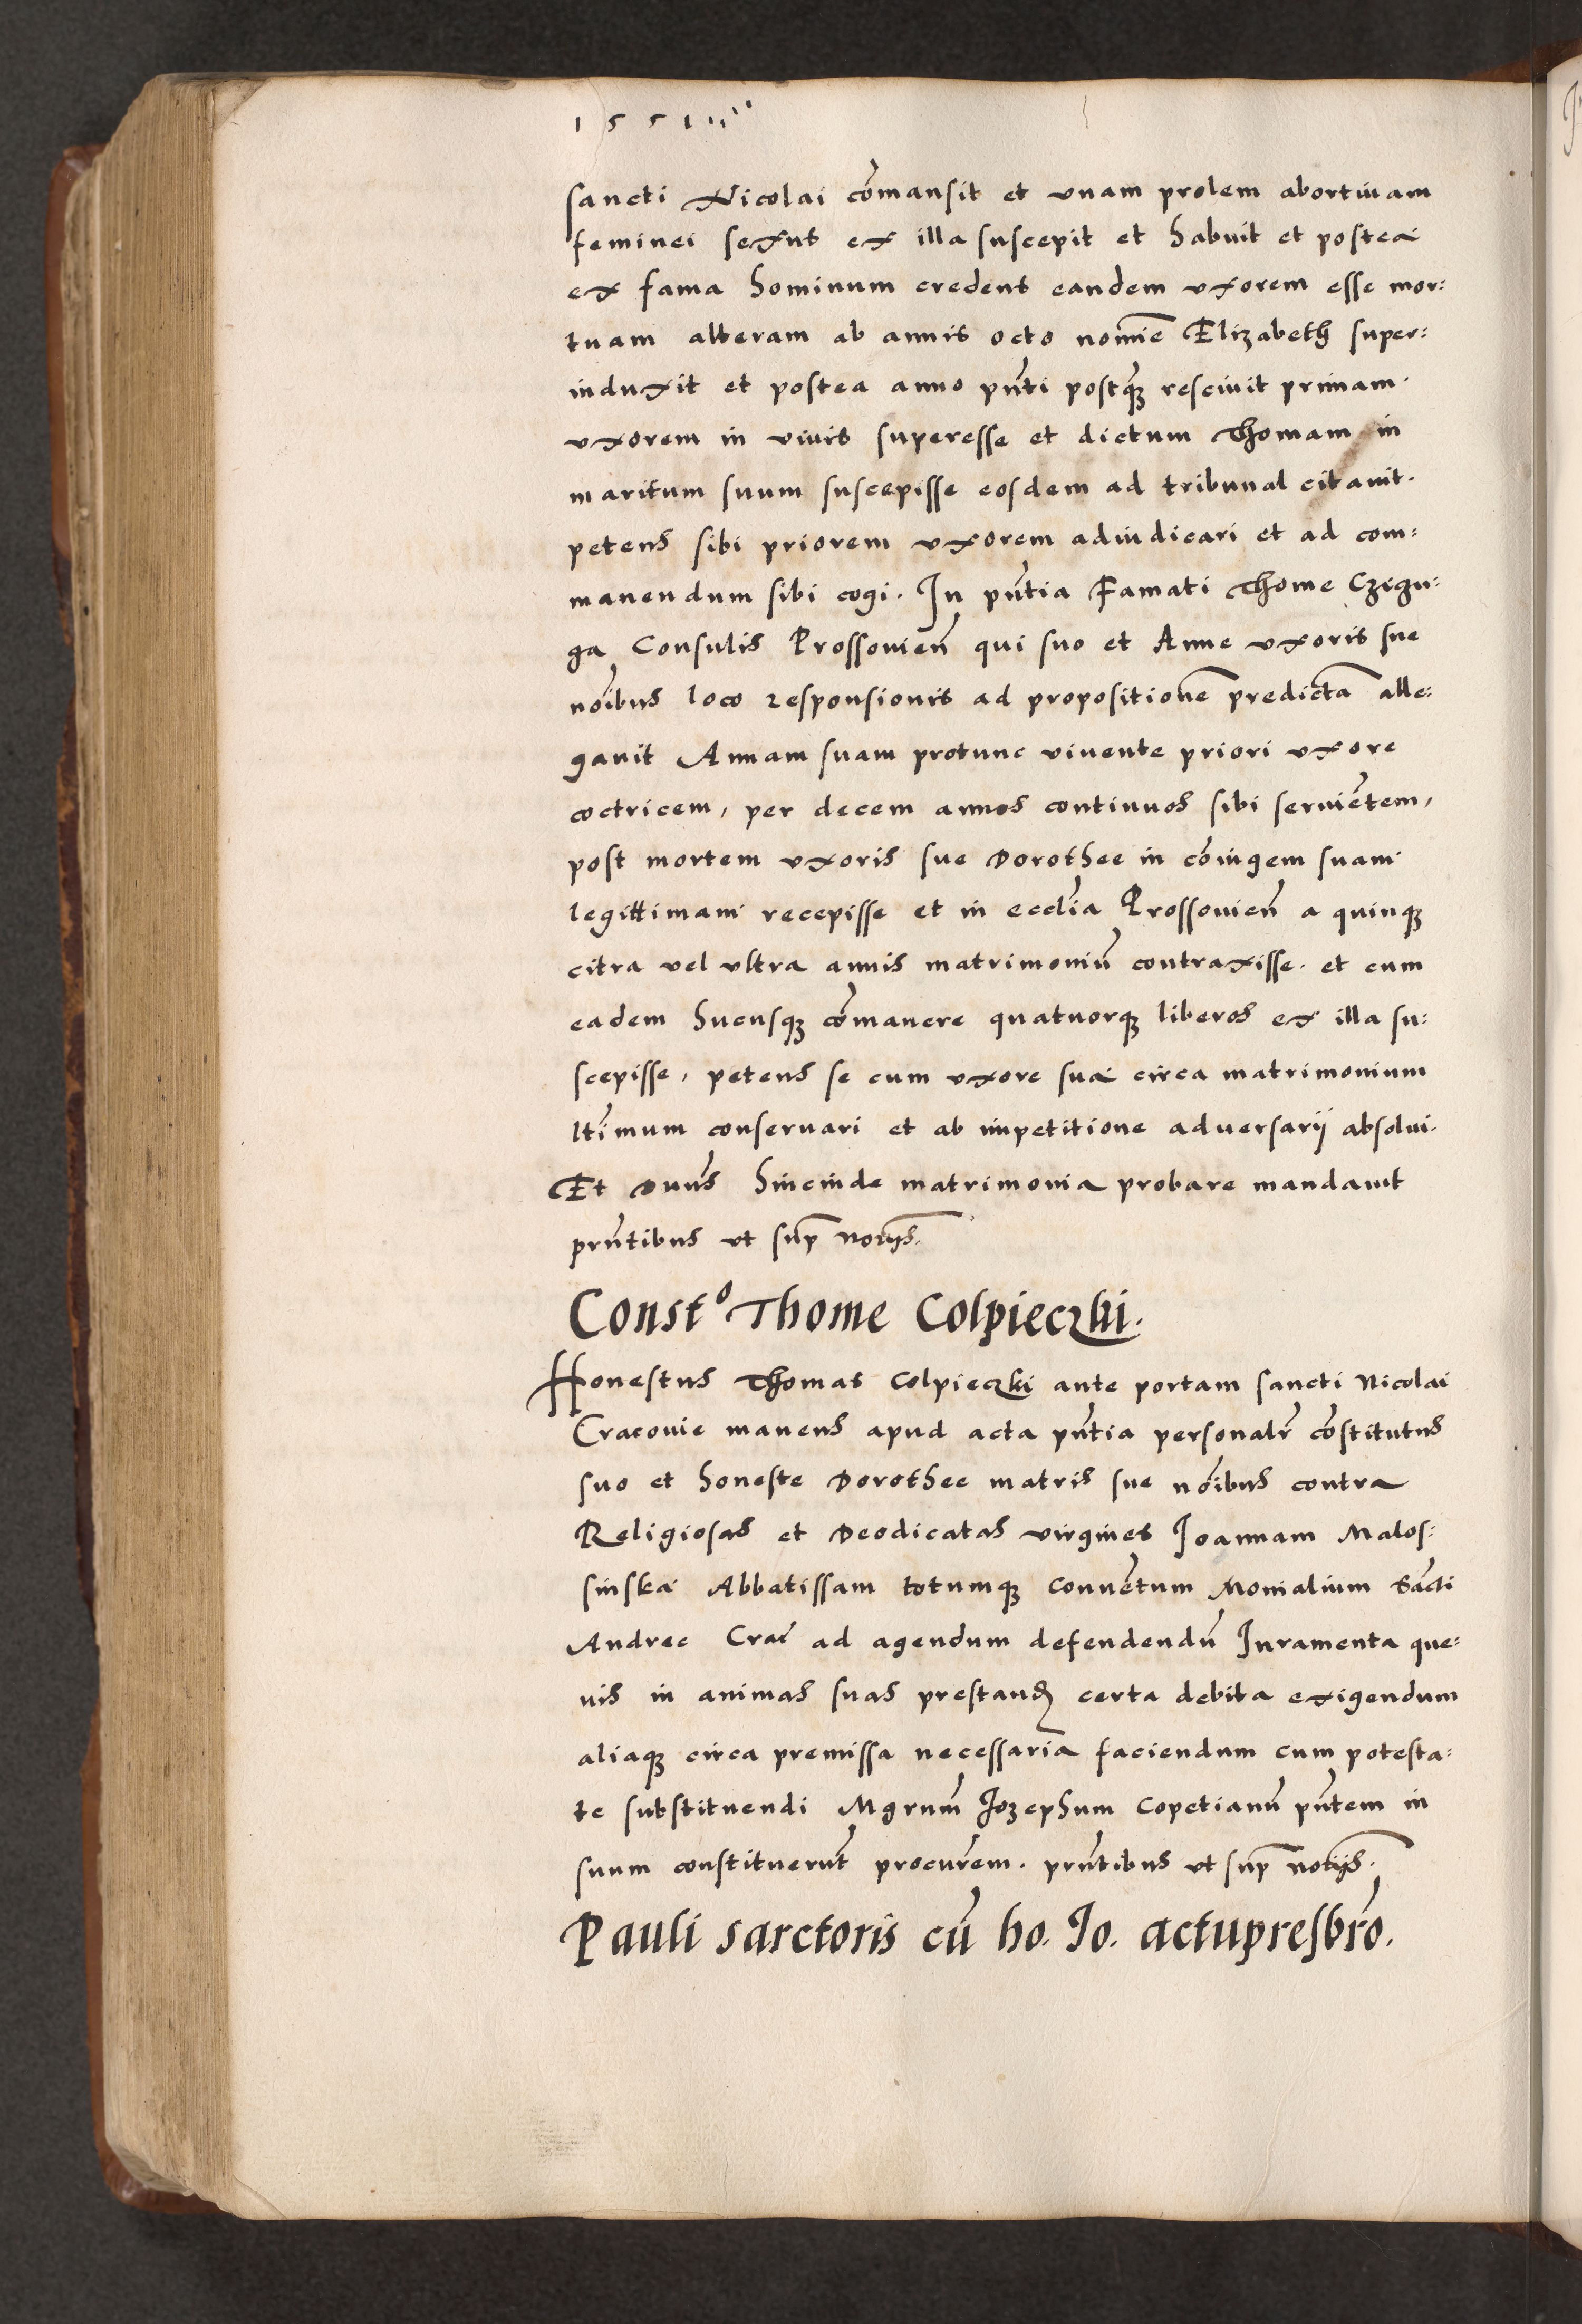 1551
sancti Nicolai cōmansit et vnam prolem abortiuam
feminei sexus ex illa suscepit et habuit et postea
ex fama hominum credens eandem vxorem esse mor:
tuam alteram ab annis octo nomīe Elizabeth super:
induxit et postea anno pn̄ti postq̄ꝫ resciuit primam
vxorem in viuis superesse et dictum Thomam in
maritum suum suscepisse eosdem ad tribunal citauit.
petens sibi priorem vxorem adiudicari et ad com:
manendum sibi cogi. In pn̄tia Famati Thome Czegu:
ga Consulis Prossouien̄ qui suo et Anne vxoris sue
nōibus loco responsionis ad propositionē predictā alle:
gauit Annam suam protunc viuente priori vxore
coctricem, per decem annos continuos sibi seruiētem,
post mortem vxoris sue Dorothee in cōiugem suam
legittimam recepisse et in eccl̄ia Prossouien̄ a quinqꝫ
citra vel vltra annis matrimoniū contraxisse. et cum
eadem hucusqꝫ cōmanere quatuorqꝫ liberos ex illa su:
scepisse, petens se cum vxore sua circa matrimonium
lt̄imum conseruari et ab impetitione aduersarij absolui.
Et Dnn̄s hincinde matrimonia probare mandauit
prn̄tibus vt sup̄ notijs.
Constᵒ Thome Colpieczki.
Honestus Thomas Colpieczki ante portam sancti Nicolai
Cracouie manens apud acta pn̄tia personalr̄ cōstitutus
suo et honeste Dorothee matris sue nōibus contra
Religiosas et Deodicatas virgines Joannam Malos:
sinska Abbatissam totumqꝫ conuētum Monialium Sācti
Andree Crac̄ ad agendum defendendū Juramenta que:
uis in animas suas prestanđ certa debita exigendum
aliaqꝫ circa premissa necessaria faciendum cum potesta:
te substituendi Mgrum̄ Jozephum Copetianū pn̄tem in
suum constituerūt procur̄em. prn̄tibus vt sup̄ notijs.
Pauli sarctoris cū ho. Jo. actupresbr̄o.